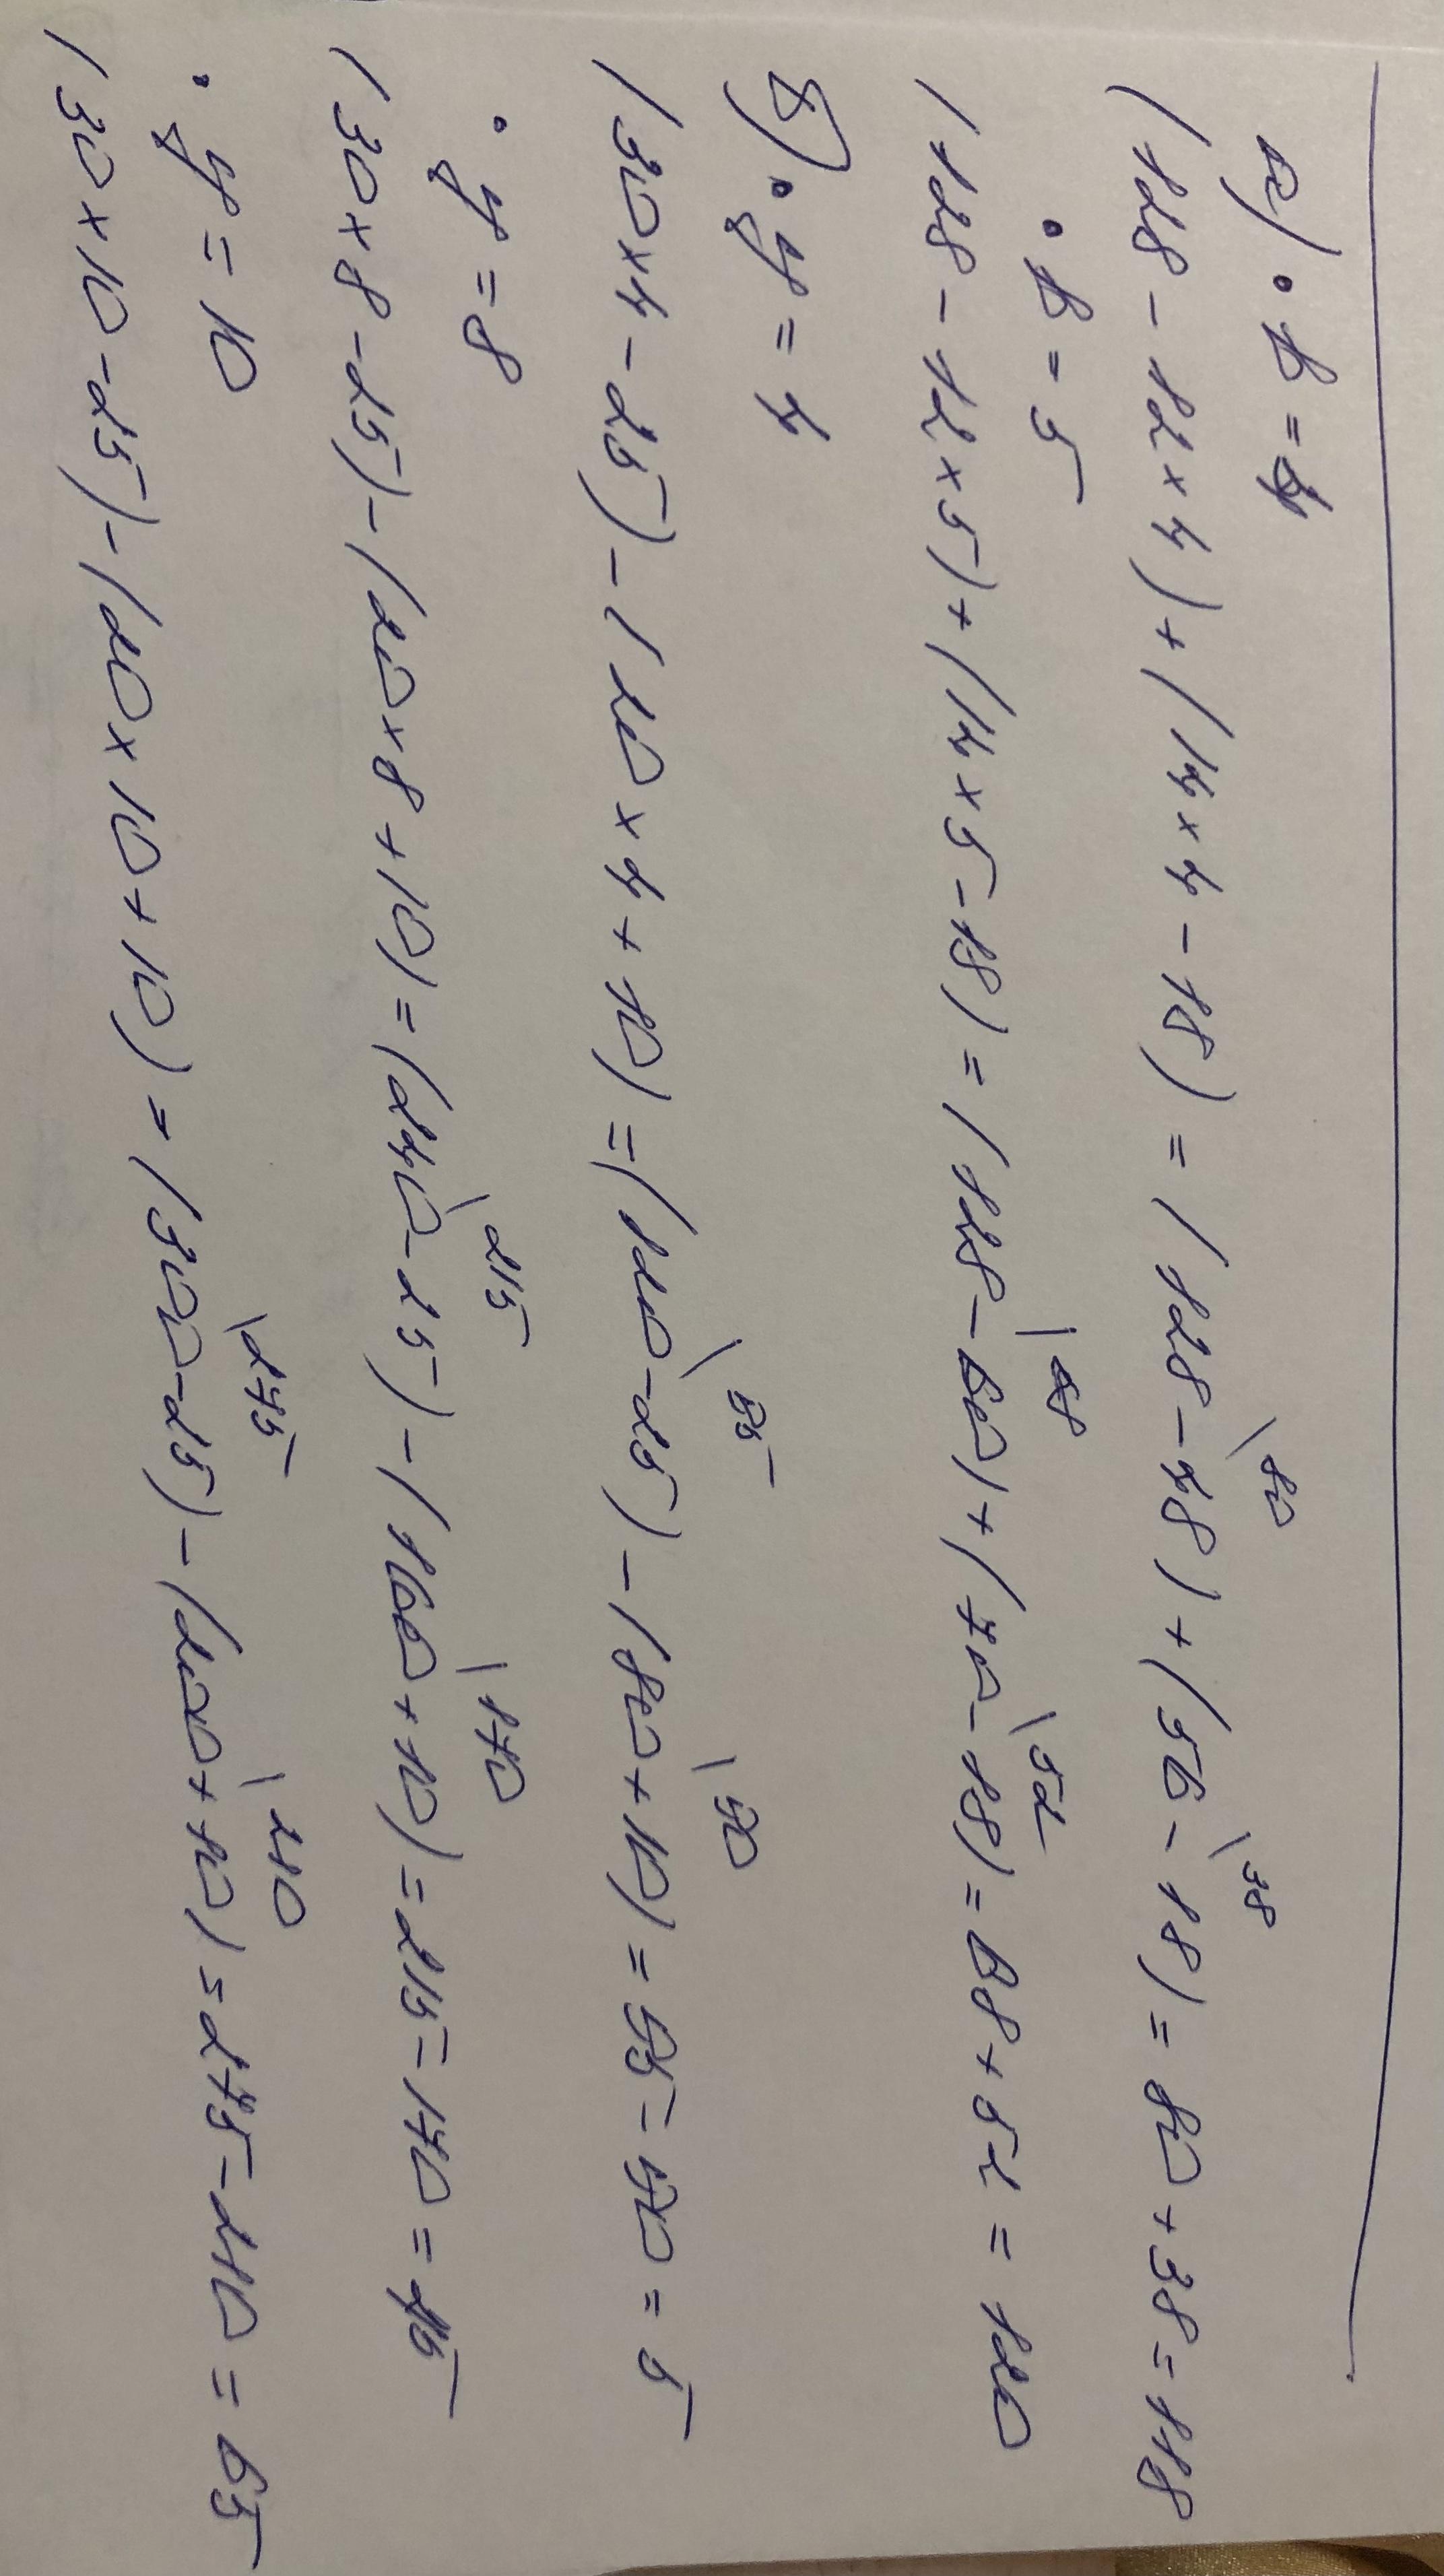 а) • в = 4
80 38
(128 - 12 × 4) + (14 × 4 - 18) = (128 - 48) + (56 - 18) = 80 + 38 = 118
• в = 5
68 52
(128 - 12 × 5) + (14 × 5 - 18) = (128 - 60) + (70 - 18) = 68 + 52 = 120
б) • у = 4
95 90
(30 × 4 - 25) - (20 × 4 + 10) = (120 - 25) - (80 + 10) = 95 - 90 = 5
• у = 8
215 170
(30 × 8 - 25) - (20 × 8 + 10) = (240 - 25) - (160 + 10) = 215 - 170 = 45
• у = 10
275 210
(30 × 10 - 25) - (20 × 10 + 10) = (300 - 25) - (200 + 10) = 275 - 210 = 65